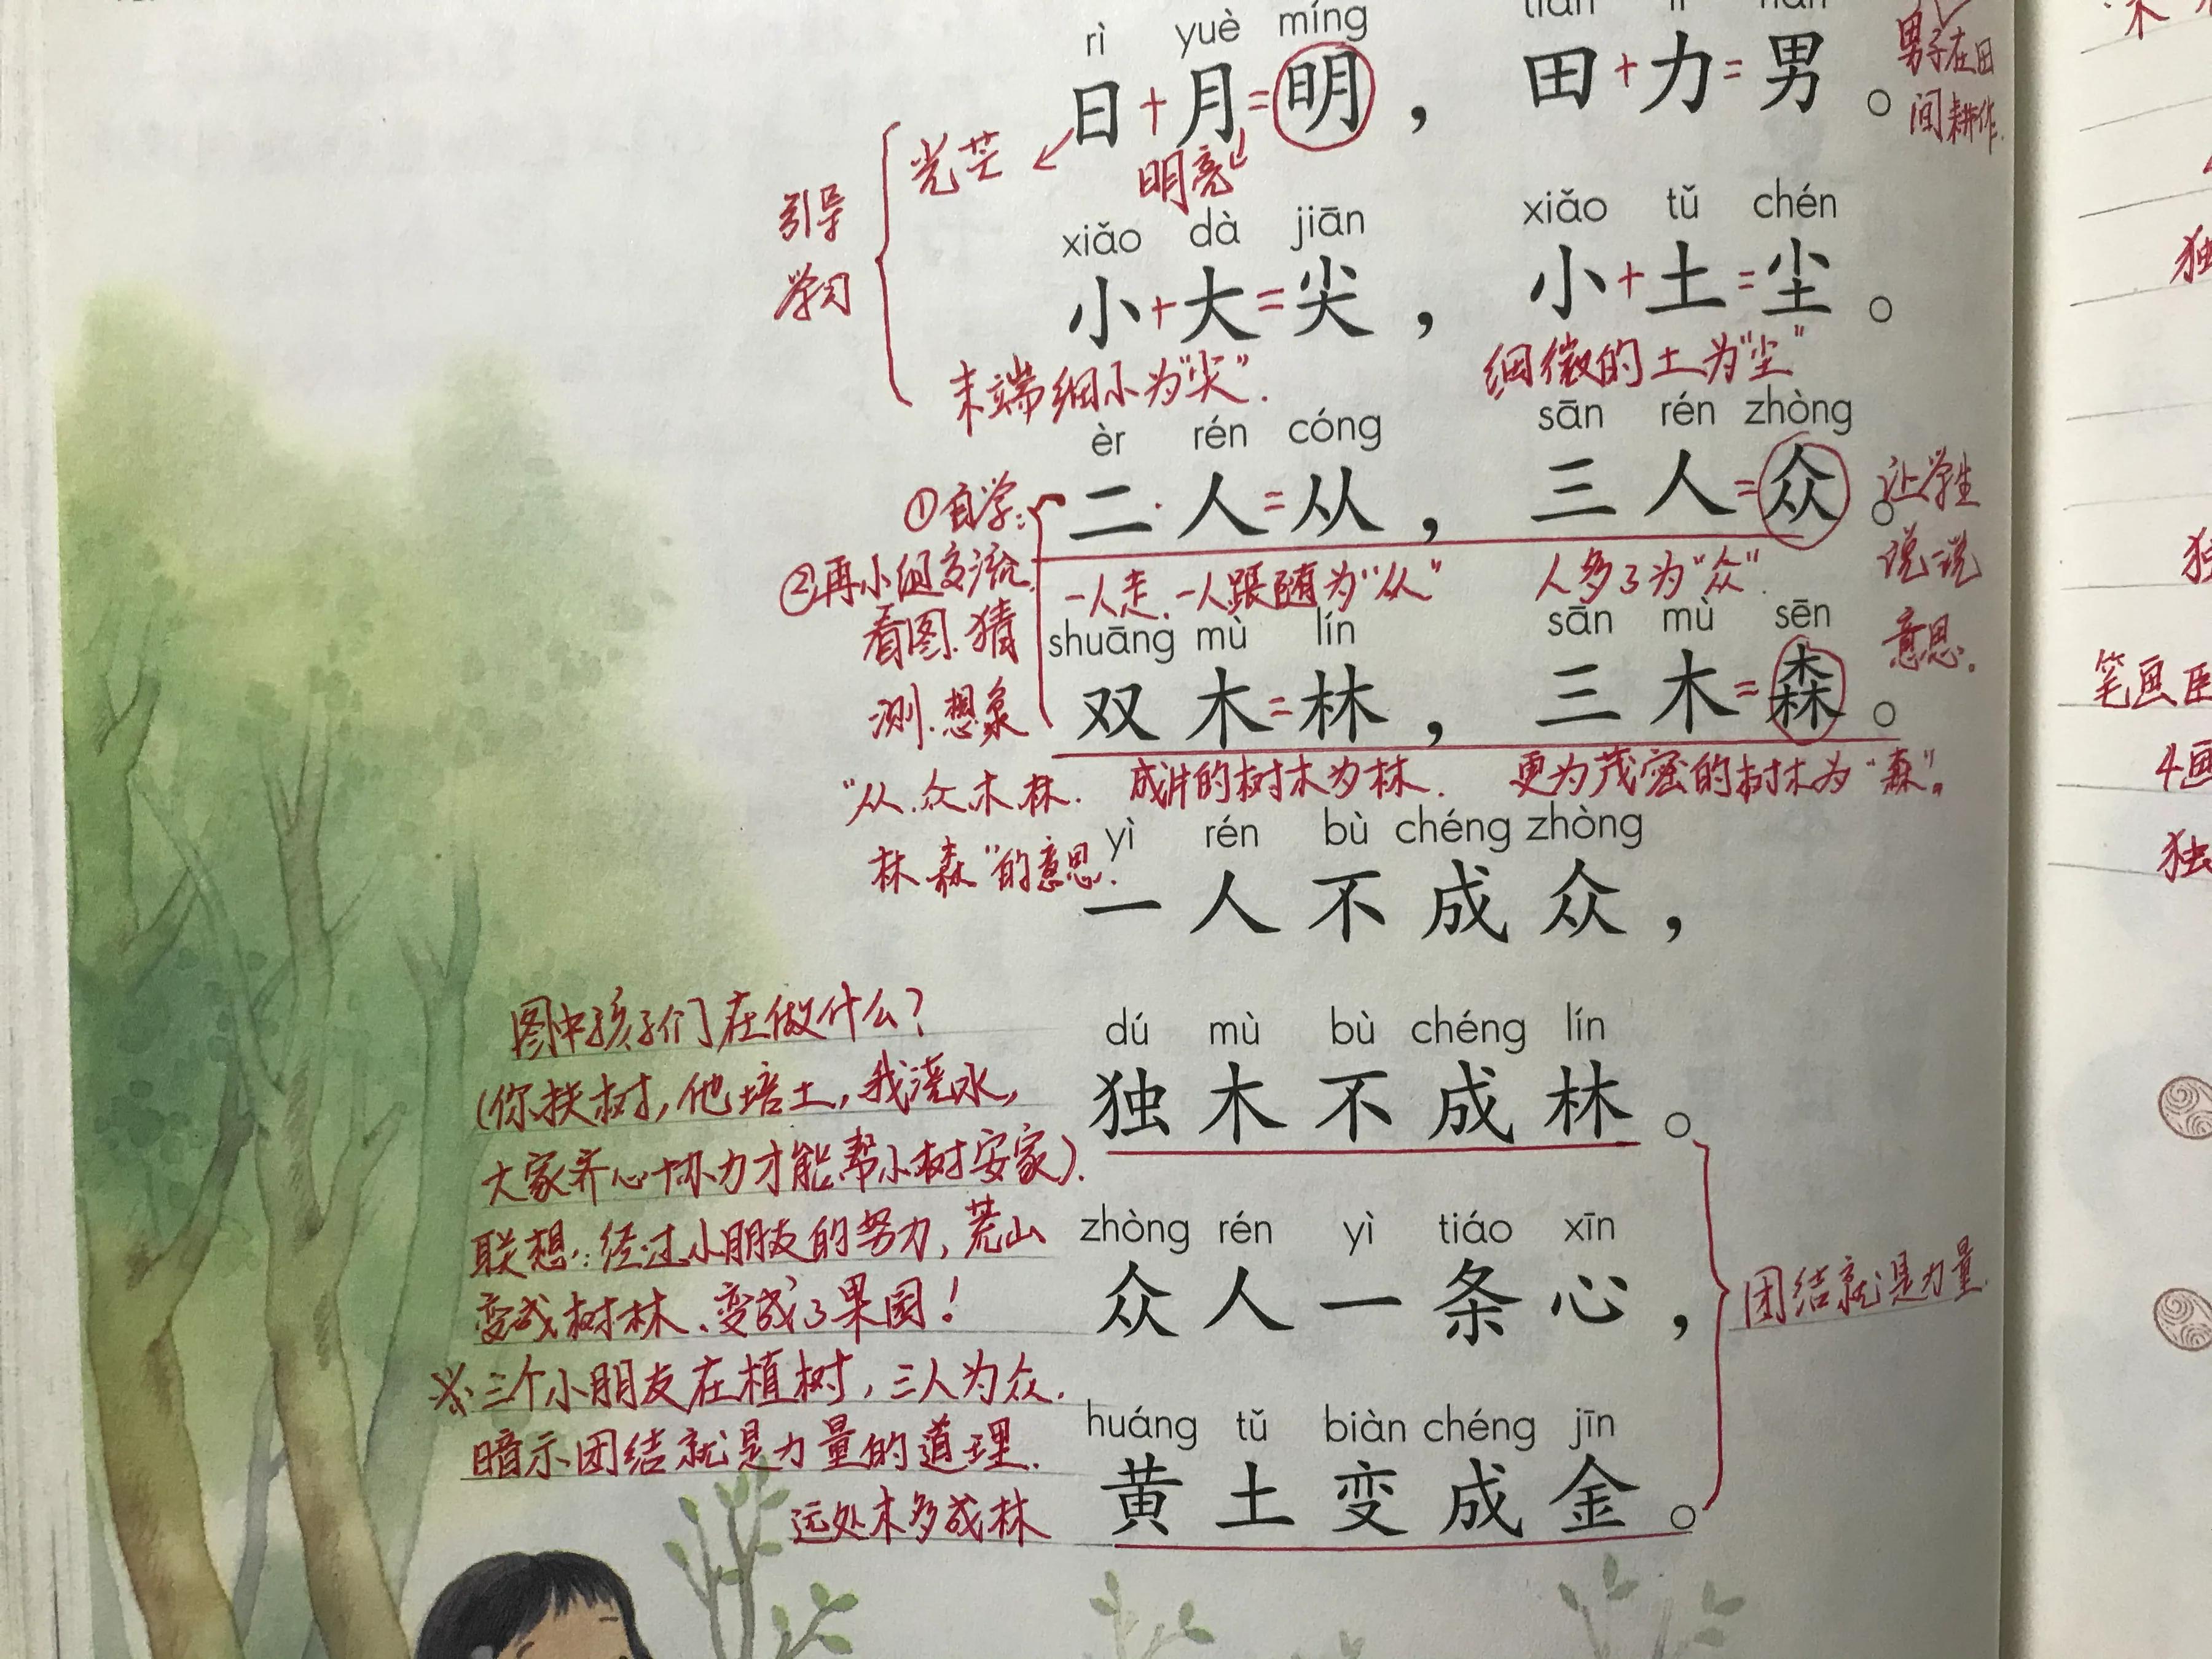 rì yuè míng
日+月=明，田+力=男。
男子在田
间耕作.
光芒
明亮
引导
学习
xiǎo dà jiān xiǎo tǔ chén
小+大=尖，小+土=尘。
末端细小为"尖".
细微的土为"尘"
èr rén cóng sān rén zhòng
二人=从，三人=众。
①自学:
②再小组交流.
看图.猜
测.想象
"从.众.木.林.
林.森"的意思.
让学生
说一说
意思.
一人走.一人跟随为"从"
人多了为"众".
shuāng mù lín sān mù sēn
双木=林，三木=森。
成片的树木为林.
更为茂密的树木为"森"。
yì rén bù chéng zhòng
一人不成众，
dú mù bù chéng lín
独木不成林。
zhòng rén yì tiáo xīn
众人一条心，
huáng tǔ biàn chéng jīn
黄土变成金。
团结就是力量.
图中孩子们在做什么?
(你扶树,他培土,我浇水,
大家齐心协力才能帮小树安家).
联想:经过小朋友的努力,荒山
变成树林.变成了果园!
※三个小朋友在植树,三人为众.
暗示团结就是力量的道理.
远处木多成林
笔画
4画
独